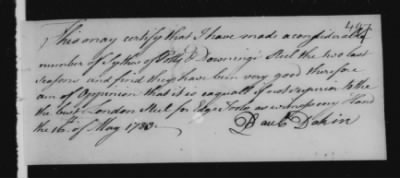 497
This may certify that I have made a considerable
number of Sythes of Potts & Downing's Steel the two last
Seasons and find they have been very good therefore
am of Oppinion that it is equall if not superior to the
the best London Steel for Edge Tools as witness my Hand
the 16th. of May 1783
Paul Dakin